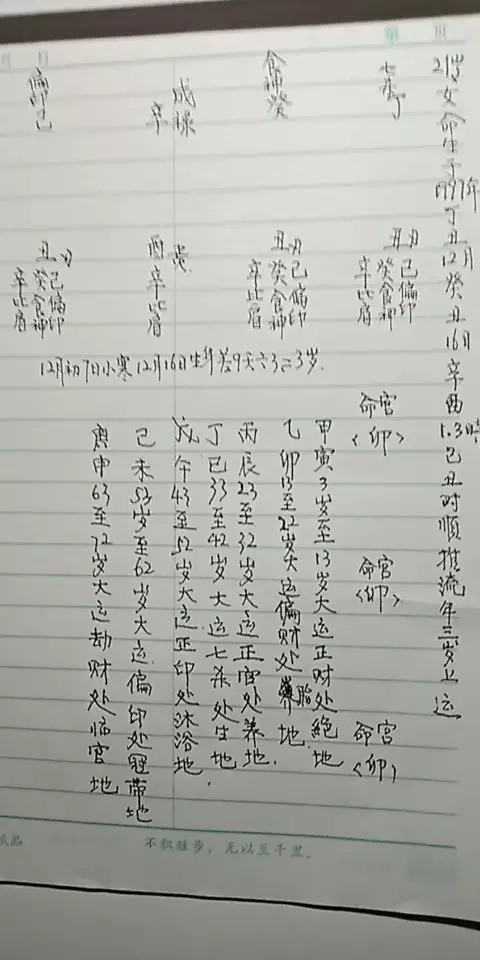 21岁女命生于1997年丁丑12月癸丑16日辛酉1.3时己丑时顺推流年三岁上运
七杀丁
食神癸
成禄
辛
偏印己
丑月
己偏印
癸食神
辛比肩
丑月
己偏印
癸食神
辛比肩
酉
辛比肩
丑月
己偏印
癸食神
辛比肩
12月初7日小寒12月16日生
命宫
<卯>
命宫
<卯>
命宫
<卯>
甲寅3岁至13岁大运正财处绝地
乙卯13至22岁大运偏财处胎地.
丙辰23至32岁大运正官处养地.
丁巳33至42岁大运七杀处生地.
戊午43至52岁大运正印处沐浴地
己未53岁至62岁大运偏印处冠带地
庚申63至72岁大运劫财处临官地
不积跬步，无以至千里。